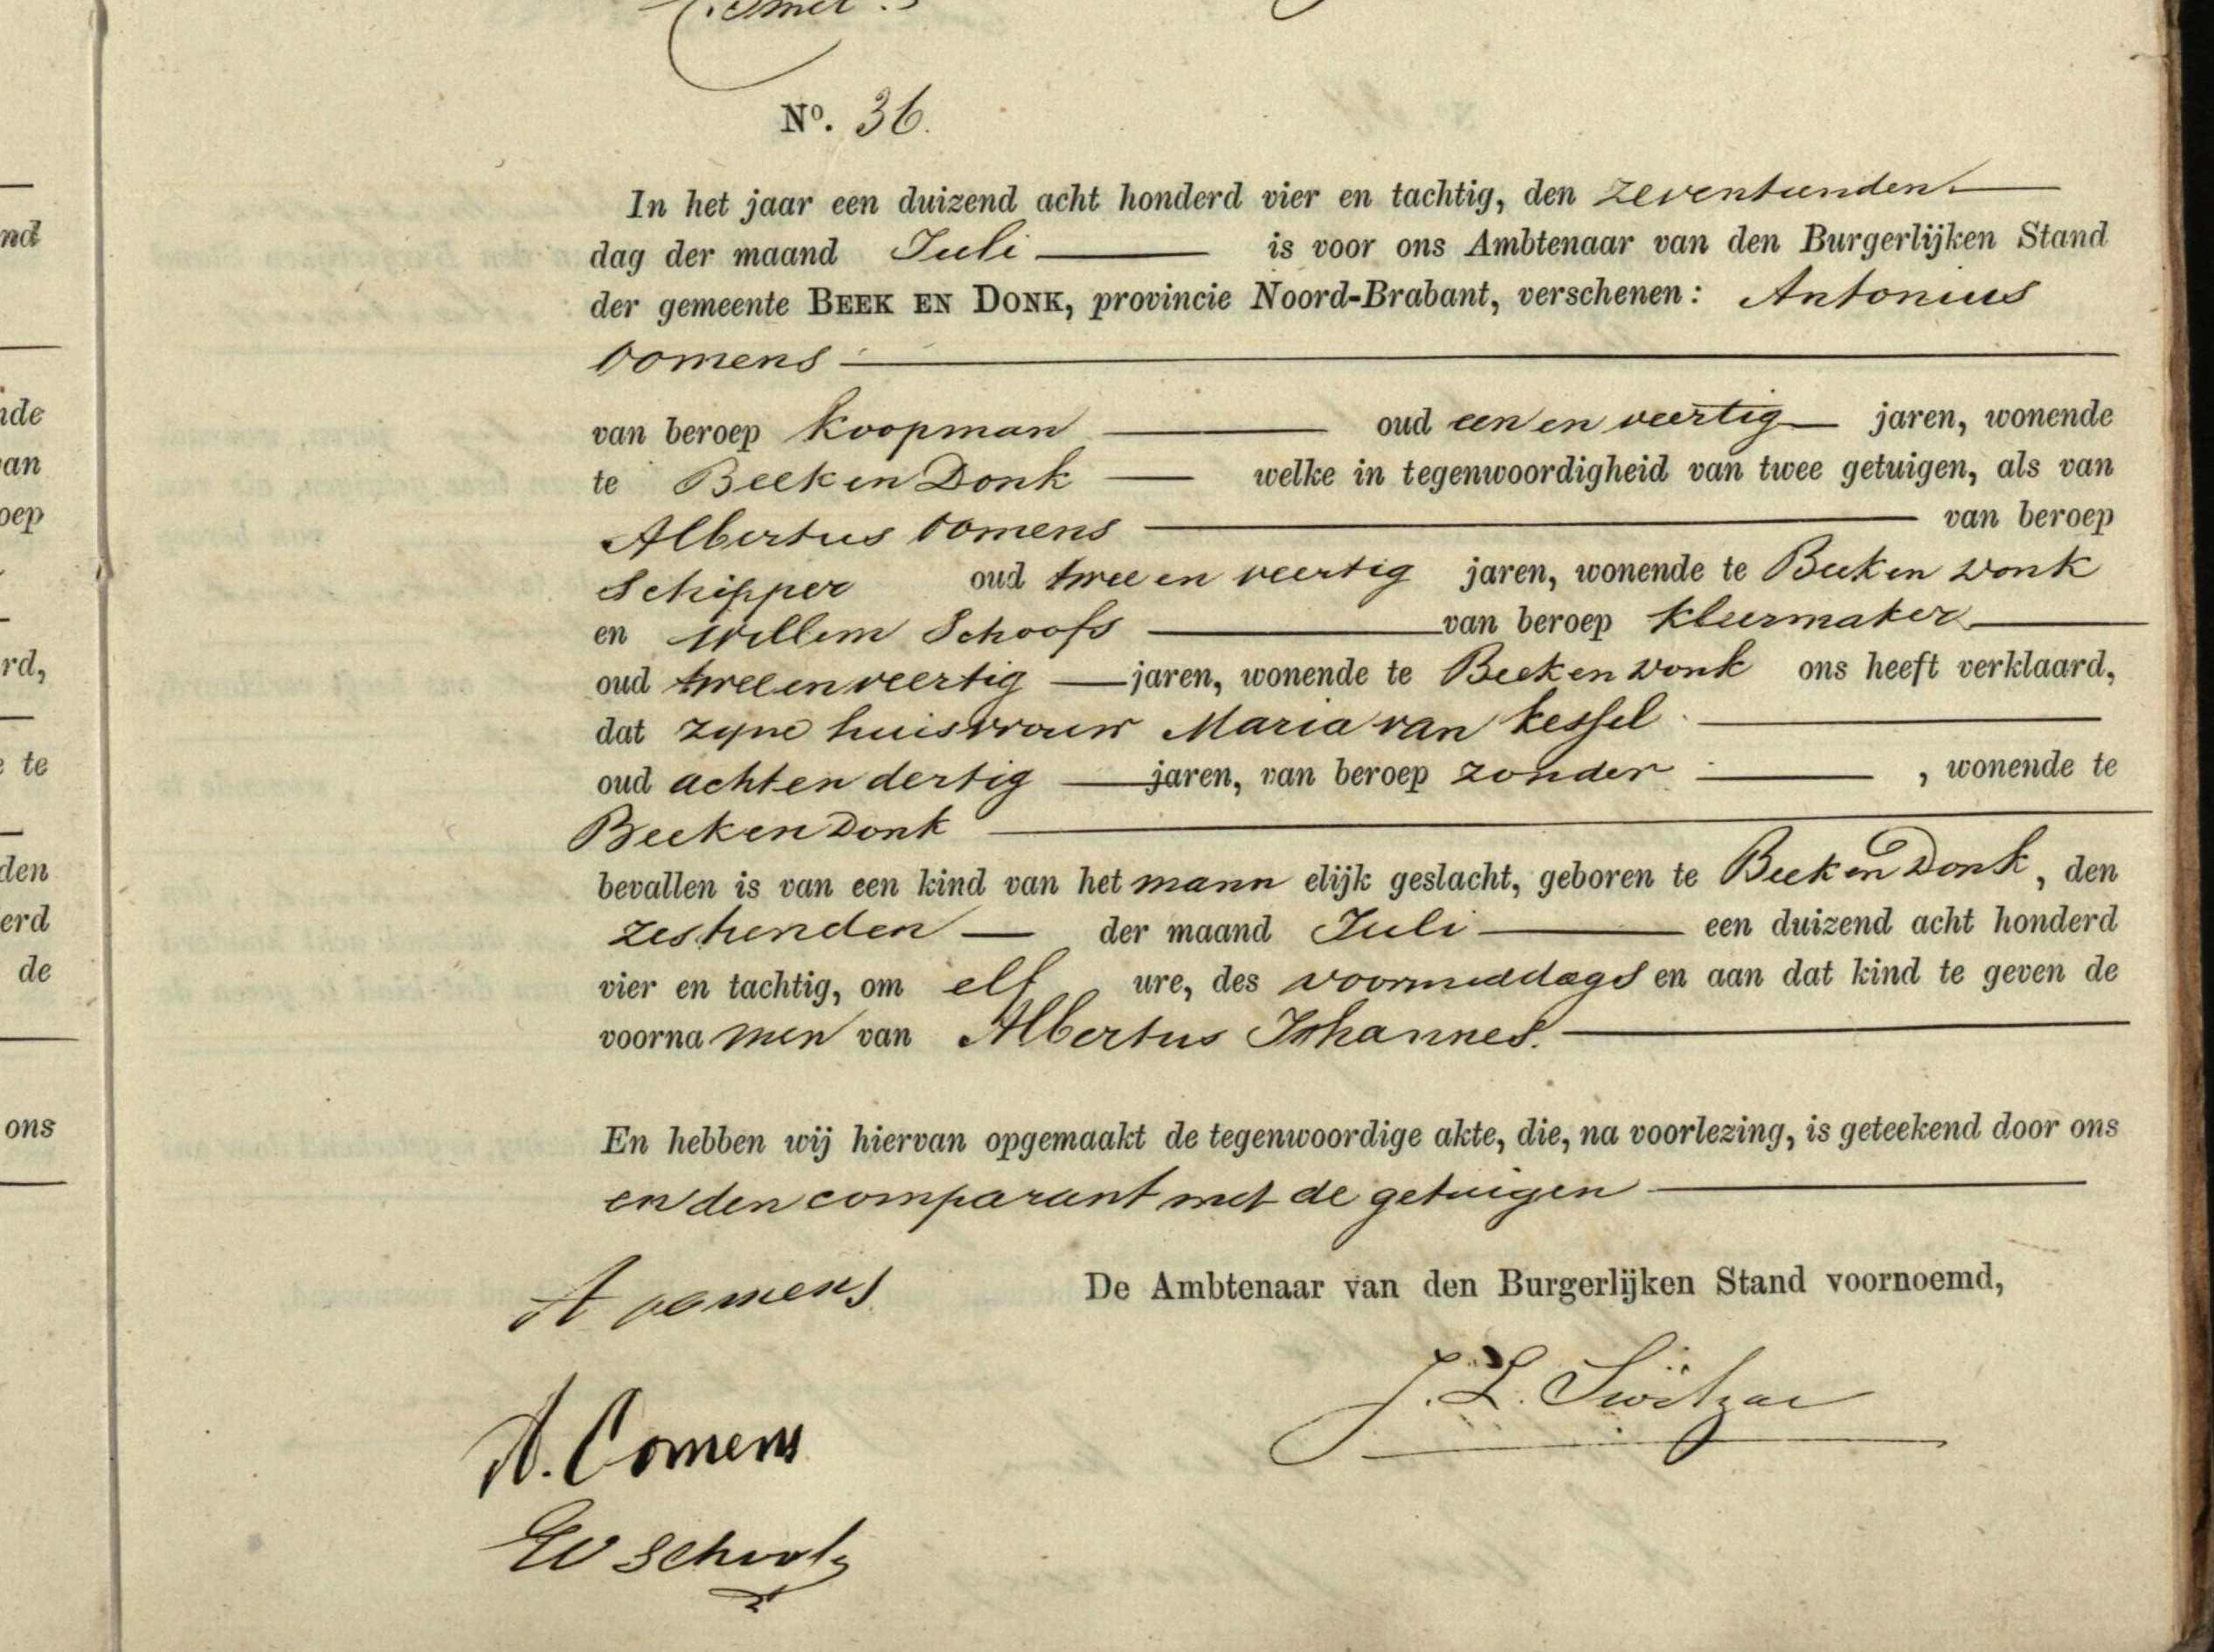 Nº. 36.
In het jaar een duizend acht honderd vier en tachtig, den zeventienden
dag der maand Juli is voor ons Ambtenaar van den Burgerlijken Stand
der gemeente BEEK EN DONK, provincie Noord-Brabant, verschenen: Antonius
Oomens
van beroep Koopman oud een en veertig jaren, wonende
te Beek en Donk welke in tegenwoordigheid van twee getuigen, als van
Albertus Oomens van beroep
Schipper oud twee en veertig jaren, wonende te Beek en Donk
en Willem Schoofs van beroep kleermaker
oud twee en veertig jaren, wonende te Beek en Donk ons heeft verklaard,
dat zyne huisvrouw Maria van Kessel
oud acht en dertig jaren, van beroep zonder , wonende te
Beek en Donk
bevallen is van een kind van het mann elijk geslacht, geboren te Beek en Donk, den
zestienden der maand Juli een duizend acht honderd
vier en tachtig, om elf ure, des voormiddags en aan dat kind te geven de
voorna men van Albertus Johannes.
En hebben wij hiervan opgemaakt de tegenwoordige akte, die, na voorlezing, is geteekend door ons
en den comparant met de getuigen
A oomens
De Ambtenaar van den Burgerlijken Stand voornoemd,
J. L.
A. Oomens
W Schoofs
nd
nde
van
oep
rd,
te
den
erd
de
ons